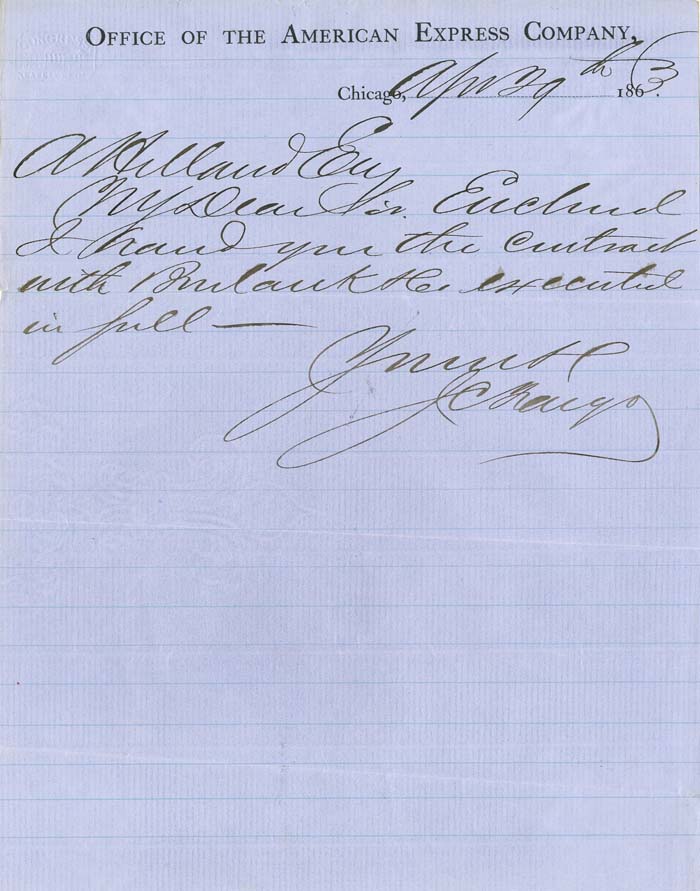 OFFICE OF THE AMERICAN EXPRESS COMPANY,
Chicago, Apr 29th 1863.
A Holland Esq
My Dear Sir. Enclosed
I hand you the contract
with Burbank & Co executed
in full —
Yours &c
J C Fargo